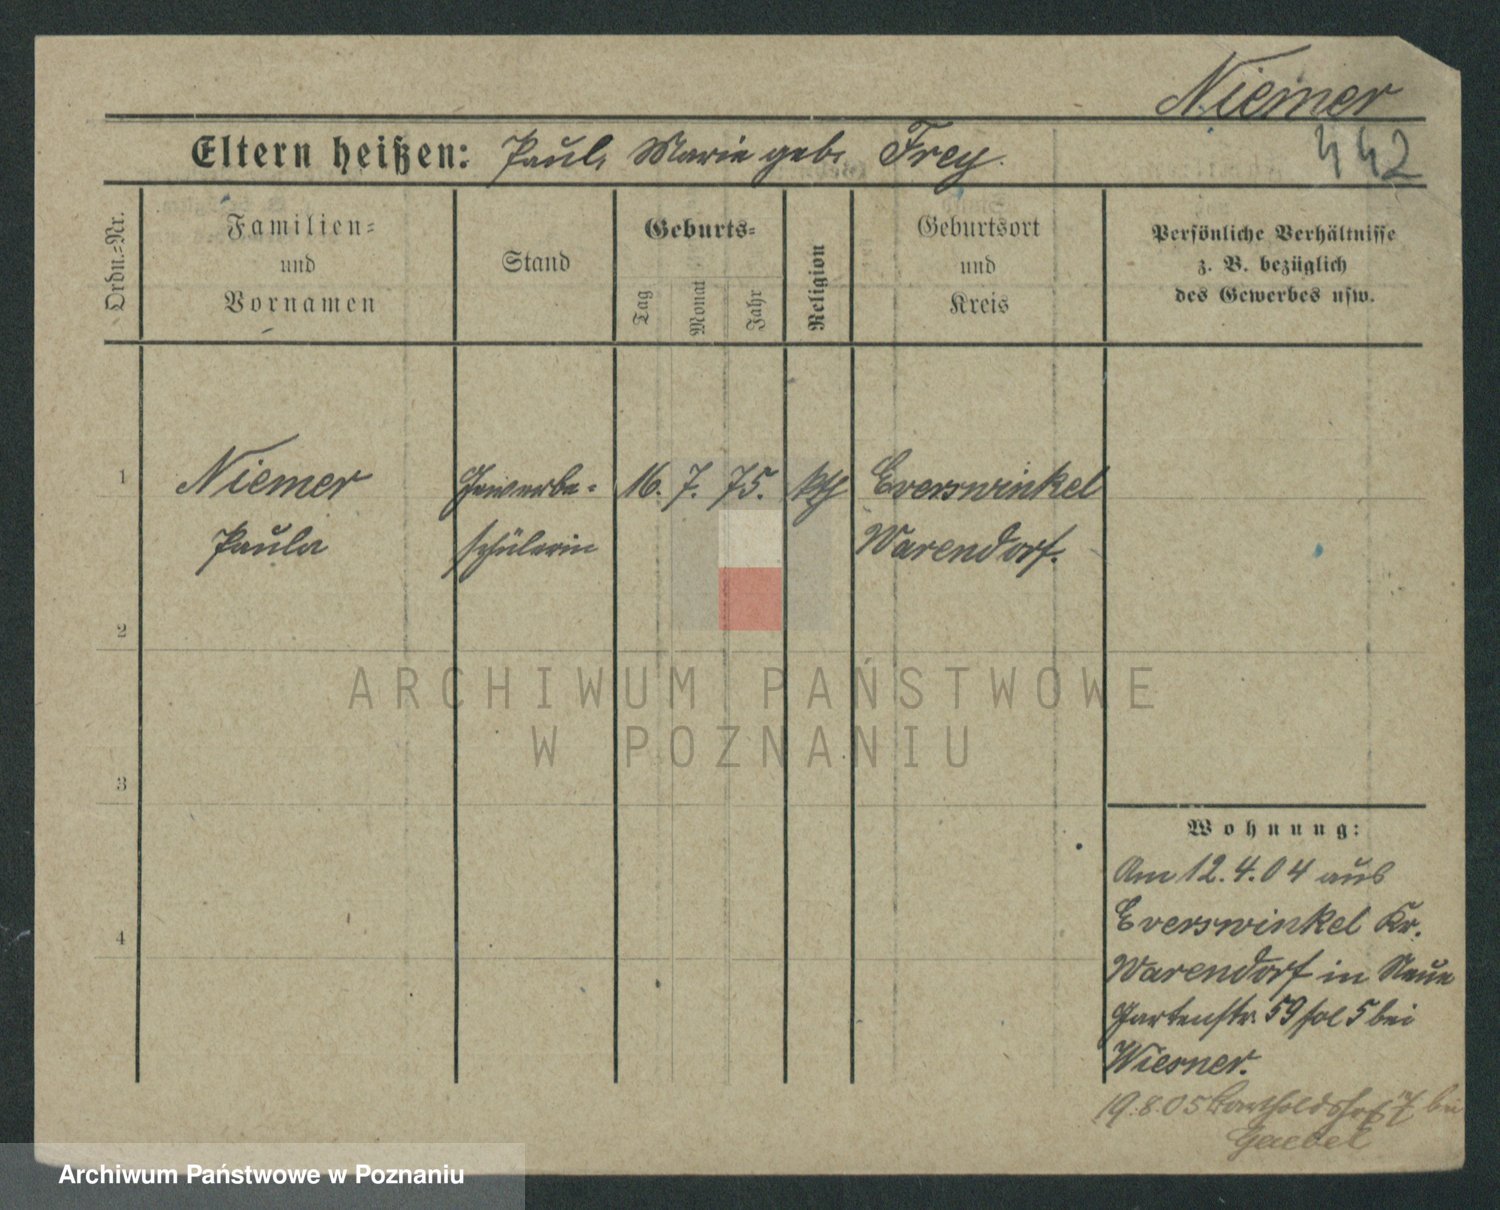 Niemer
442
Eltern heißen: Paul, Marie geb. Frey.
Ordn.-Nr.
Familien-
und
Vornamen
Stand
Geburts-
Tag
Monat
Jahr
Religion
Geburtsort
und
Kreis
Persönliche Verhältnisse
z. B. bezüglich
des Gewerbes usw.
1
Niemer Gewerbe- 16. 7. 75. kth Everswinkel
Paula schülerin Warendorf.
2
3
4
ARCHIWUM PAŃSTWOWE
W POZNANIU
Wohnung:
Am 12.4.04 aus
Everswinkel Kr.
Warendorf in Neue
Gartenstr. 59 bei
Wiesner.
19.8.05 bei
Gaebel
Archiwum Państwowe w Poznaniu